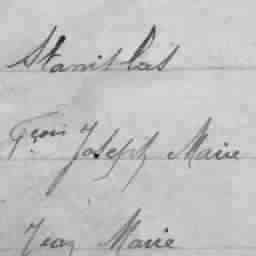 Stanislas
Fçois Joseph Marie
Jean Marie